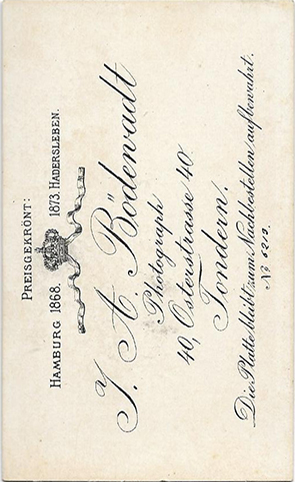 PREISGEKRÖNT:
HAMBURG 1868. 1873. HADERSLEBEN.
J. A. Bödewadt
Photograph
40, Osterstrasse 40
Tondern.
Die Platte bleibt zum Nachbestellen aufbewahrt.
No 6212.